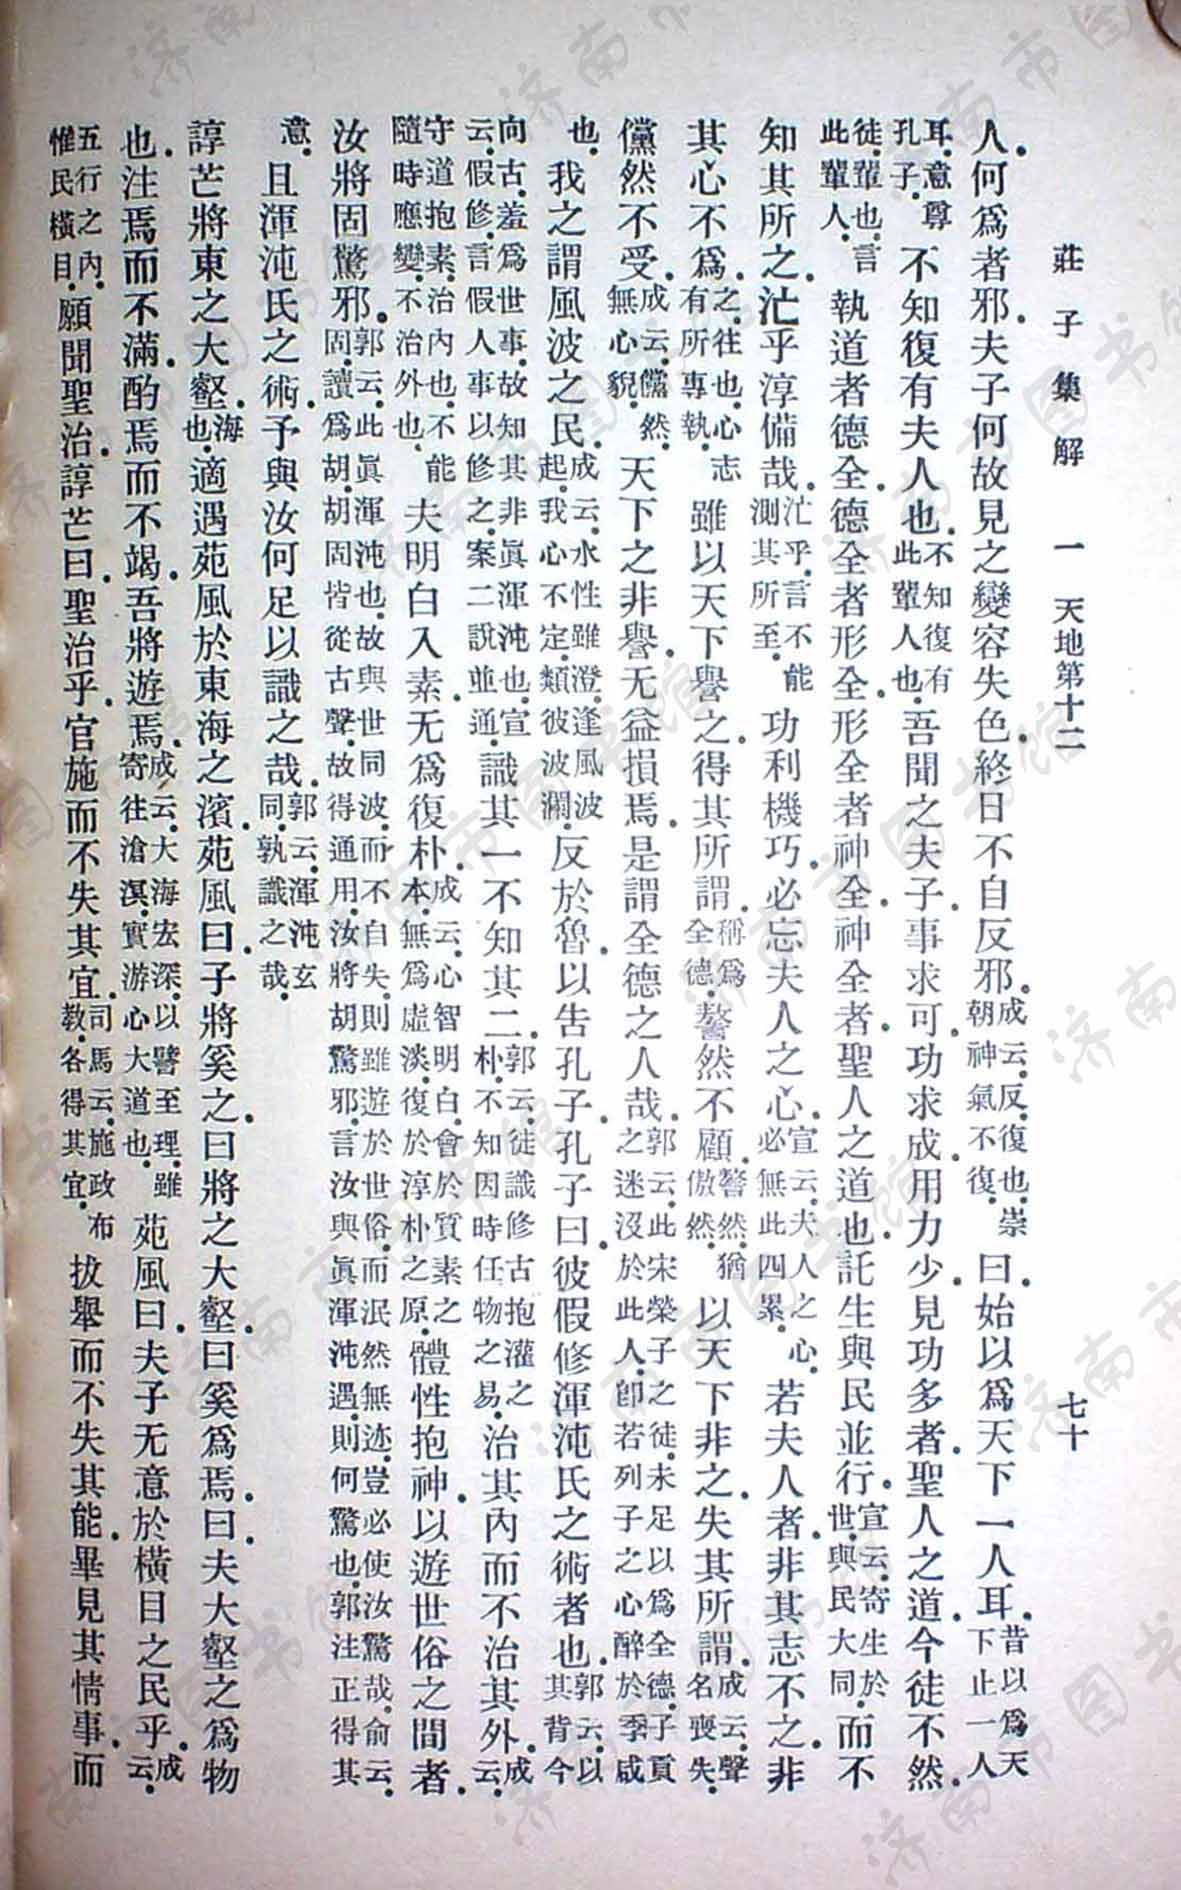 莊子集解　一　天地第十二　七十
人。何爲者邪。夫子何故見之變容失色。終日不自反邪。成云。反。復也。崇朝神氣不復。曰。始以爲天下一人耳。昔以爲天下止一人
耳。意尊孔子。不知復有夫人也。不知復有此輩人也。吾聞之夫子。事求可。功求成。用力少。見功多者。聖人之道。今徒不然。
徒。輩也。言此輩人。執道者德全。德全者形全。形全者神全。神全者。聖人之道也。託生與民並行。宣云。寄生於世。與民大同。而不
知其所之。汒乎淳備哉。汒乎。言不能測其所至。功利機巧。必忘夫人之心。宣云。夫人之心。必無此四累。若夫人者。非其志不之。非
其心不爲。之。往也。心志有所專執。雖以天下譽之。得其所謂。稱爲全德。謷然不顧。謷然。猶傲然。以天下非之。失其所謂。成云。聲名喪失。
儻然不受。成云。儻然。無心貌。天下之非譽。无益損焉。是謂全德之人哉。郭云。此宋榮子之徒。未足以爲全德。子貢之迷沒於此人。卽若列子之心醉於季咸
也。我之謂風波之民。成云。水性雖澄。逢風波起。我心不定。類彼波瀾。反於魯。以告孔子。孔子曰。彼假修渾沌氏之術者也。郭云。以其背今
向古。羞爲世事。故知其非眞渾沌也。宣云。假修。言假人事以修之。案二說並通。識其一。不知其二。郭云。徒識修古抱灌之朴。不知因時任物之易。治其內而不治其外。成云。
守道抱素。治內也。不能隨時應變。不治外也。夫明白入素。无爲復朴。成云。心智明白。會於質素之本。無爲虛淡。復於淳朴之原。體性抱神。以遊世俗之間者。
汝將固驚邪。郭云。此眞渾沌也。故與世同波。而不自失。則雖遊於世俗。而泯然無迹。豈必使汝驚哉。俞云。固讀爲胡。胡固皆從古聲。故得通用。汝將胡驚邪。言汝與眞渾沌遇。則何驚也。郭注正得其
意。且渾沌氏之術。予與汝何足以識之哉。郭云。渾沌玄同。孰識之哉。
諄芒將東之大壑。海也。適遇苑風於東海之濱。苑風曰。子將奚之。曰將之大壑。曰奚爲焉。曰。夫大壑之爲物
也。注焉而不滿。酌焉而不竭。吾將遊焉。成云。大海宏深。以譬至理。雖寄往滄溟。實游心大道也。苑風曰。夫子无意於橫目之民乎。成云。
五行之內。惟民橫目。願聞聖治。諄芒曰。聖治乎。官施而不失其宜。司馬云。施政布教。各得其宜。拔舉而不失其能。畢見其情事。而
济南市图书馆